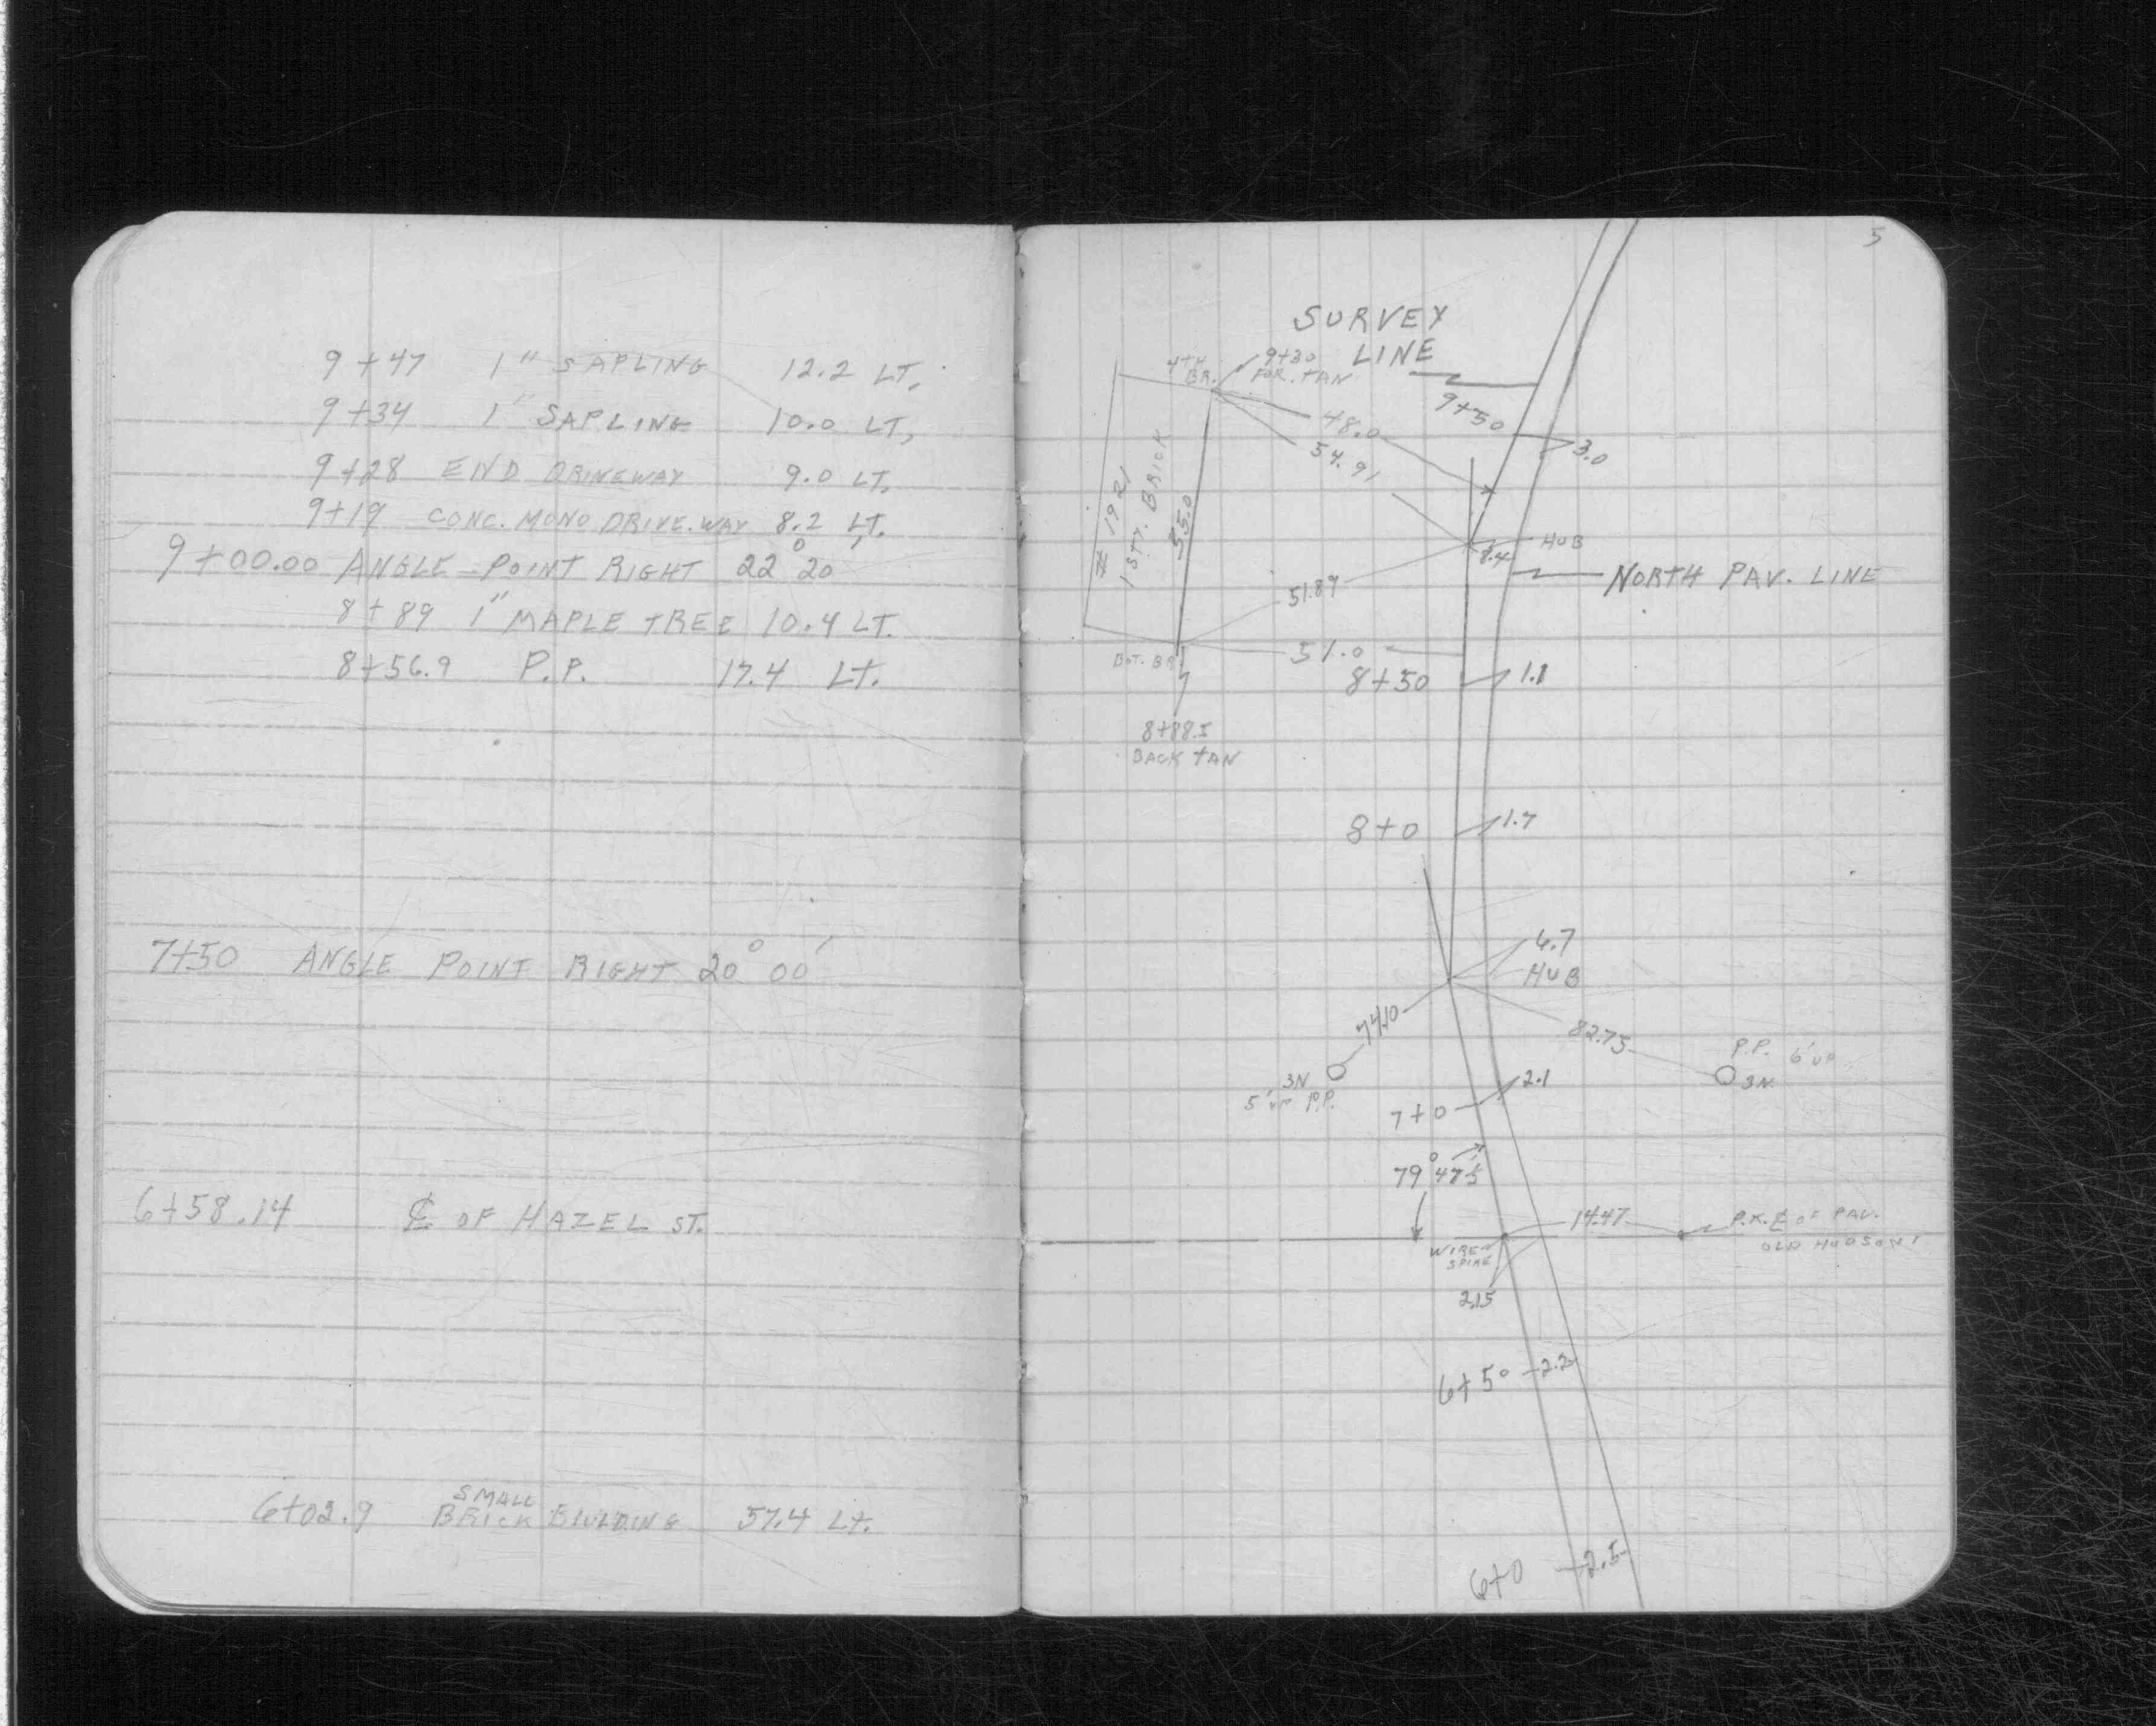 9+47 1" SAPLING 12.2 LT.
9+34 1" SAPLING 10.0 LT,
9+28 END DRINEWAY 9.0 LT,
9+19 CONC. MONO DRIVE.WAY 8.2 LT.
9+00.00 ANGLE POINT RIGHT 22° 20'
8+89 1" MAPLE TREE 10.4 LT.
8+56.9 P.P. 17.4 LT.
7+50 ANGLE POINT RIGHT 20° 00'
6+58.14 ℄ OF HAZEL ST.
SMALL
6+02.9 BRICK BIULDING 57.4 LT.
5
SURVEY
LINE
4TH
BR.
9+30
FOR. TAN
9+50
48.0
54.91
3.0
# 1921
1 STY. BRICK
35.0
HUB
8.4
NORTH PAV. LINE
51.89
BOT. BR.
51.0
8+50
1.1
8+88.5
BACK TAN
8+0
1.7
6.7
HUB
74.10
82.75
P.P. 6' UP
3N
3N
5' UP P.P.
2.1
7+0
79° 47'5
14.47
P.K. ℄ OF PAV.
OLD HUDSON
WIRE
SPIKE
2.15
6+50
2.2
6+0
2.5